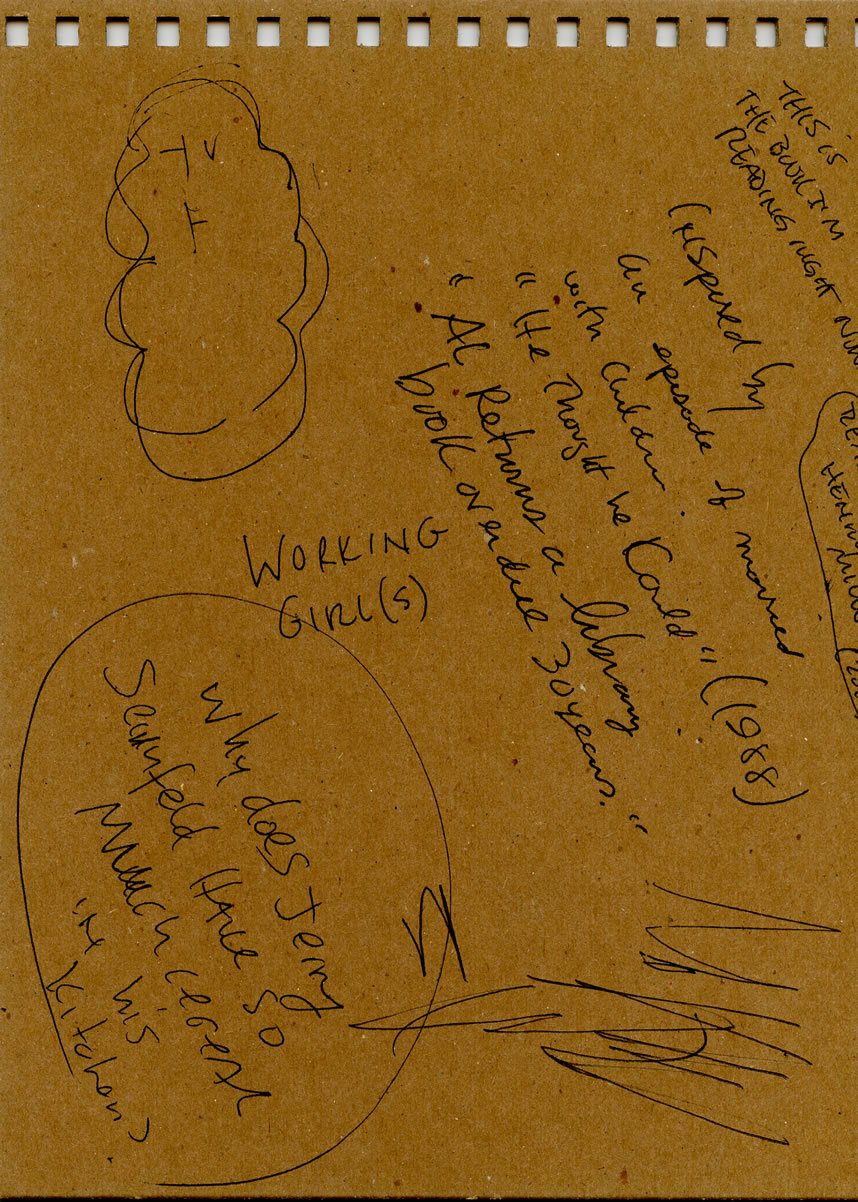 THIS IS
THE BOOK I'M
READING RIGHT NOW
Inspired by
an episode of married
with children.
"He Thought he Could" (1988)
"AL Returns a library
book overdue 30 years."
WORKING
GIRL(S)
Why does Jerry
Seinfeld Have so
Much cereal
in his
kitchen?